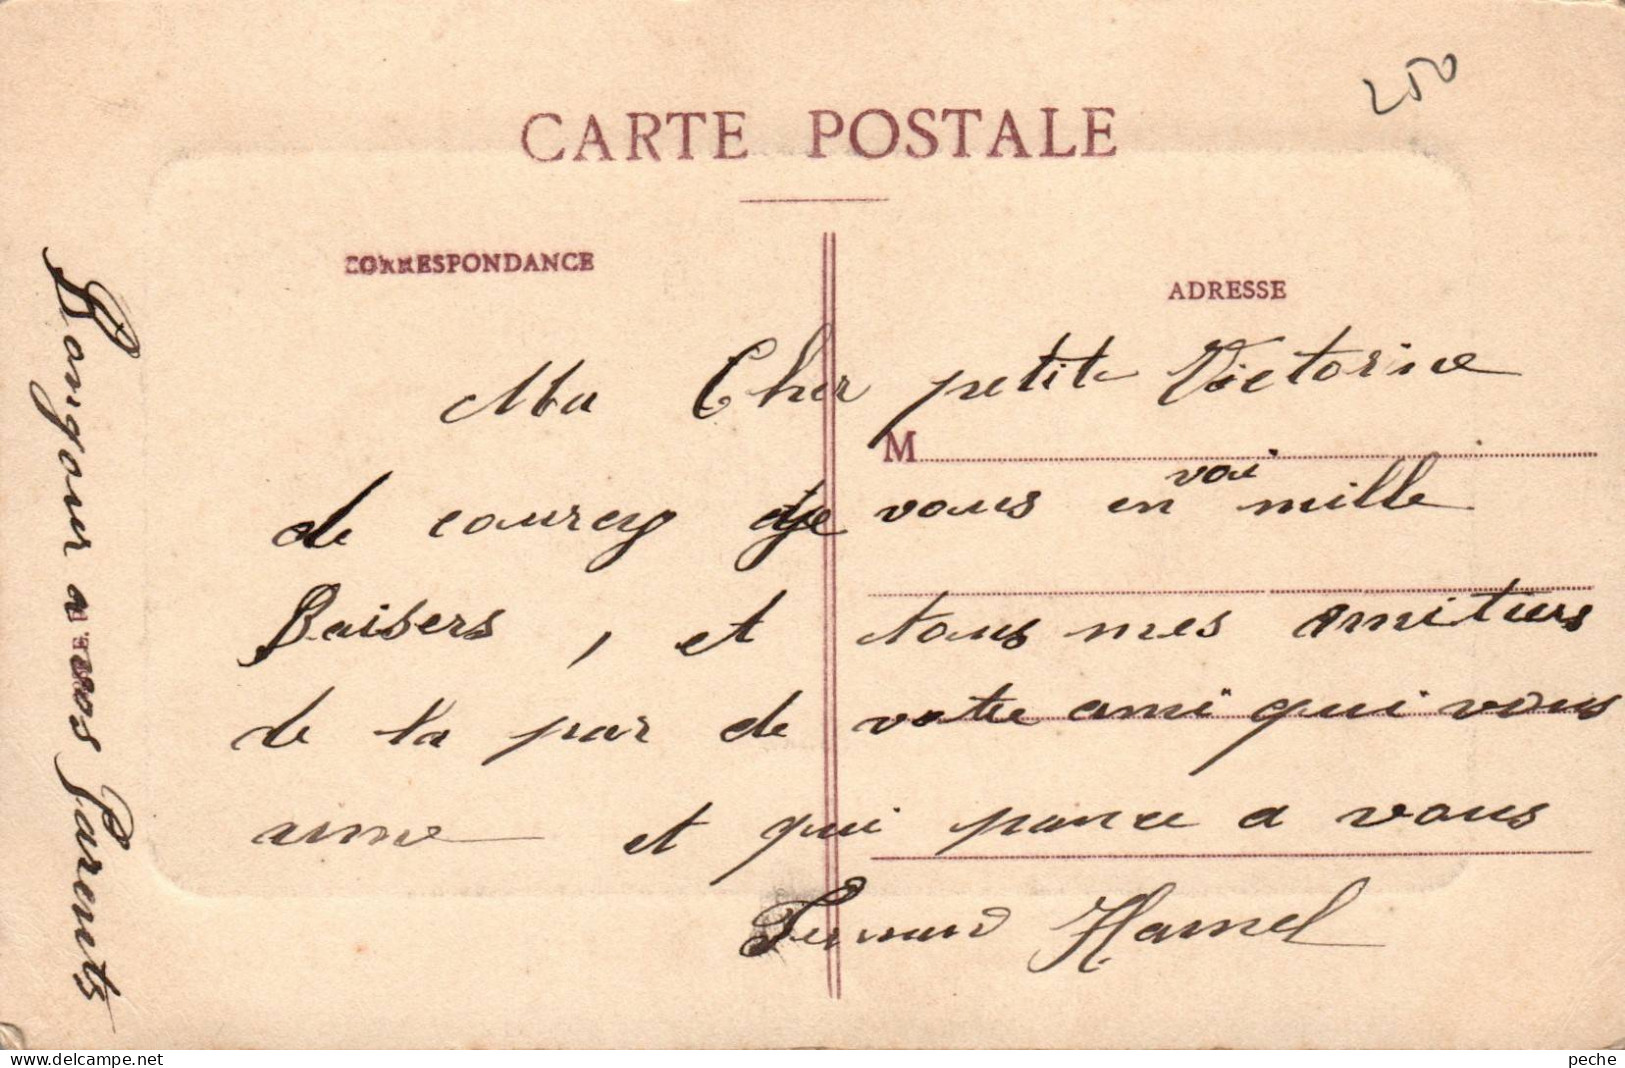 250
CARTE POSTALE
CORRESPONDANCE
ADRESSE
Ma Cher petite Victorine
M
de courcy je vous en voi mille
Baisers, et tous mes amitiers
de la par de votre ami qui vous
aime et qui pance a vous
Fernand Hamel
Bongour a vos Parents
delcampe.net
peche